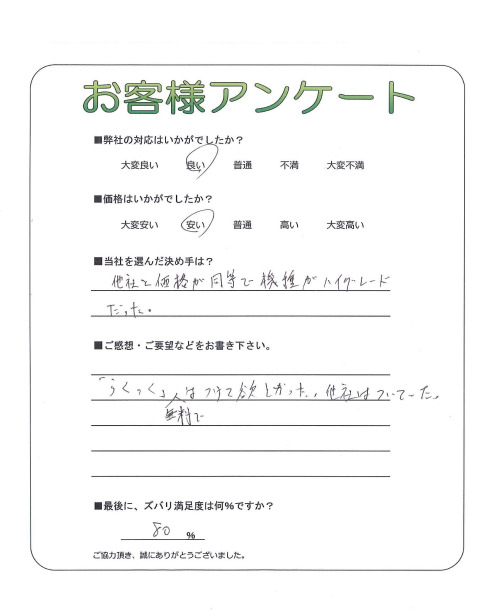 お客様アンケート
■弊社の対応はいかがでしたか？
大変良い 良い 普通 不満 大変不満
■価格はいかがでしたか？
大変安い 安い 普通 高い 大変高い
■当社を選んだ決め手は？
他社と価格が同等で機種がハイグレード
だった。
■ご感想・ご要望などをお書き下さい。
「らくっく」は つけて欲しかった。他社はついてた。
無料で
■最後に、ズバリ満足度は何％ですか？
80 ％
ご協力頂き、誠にありがとうございました。